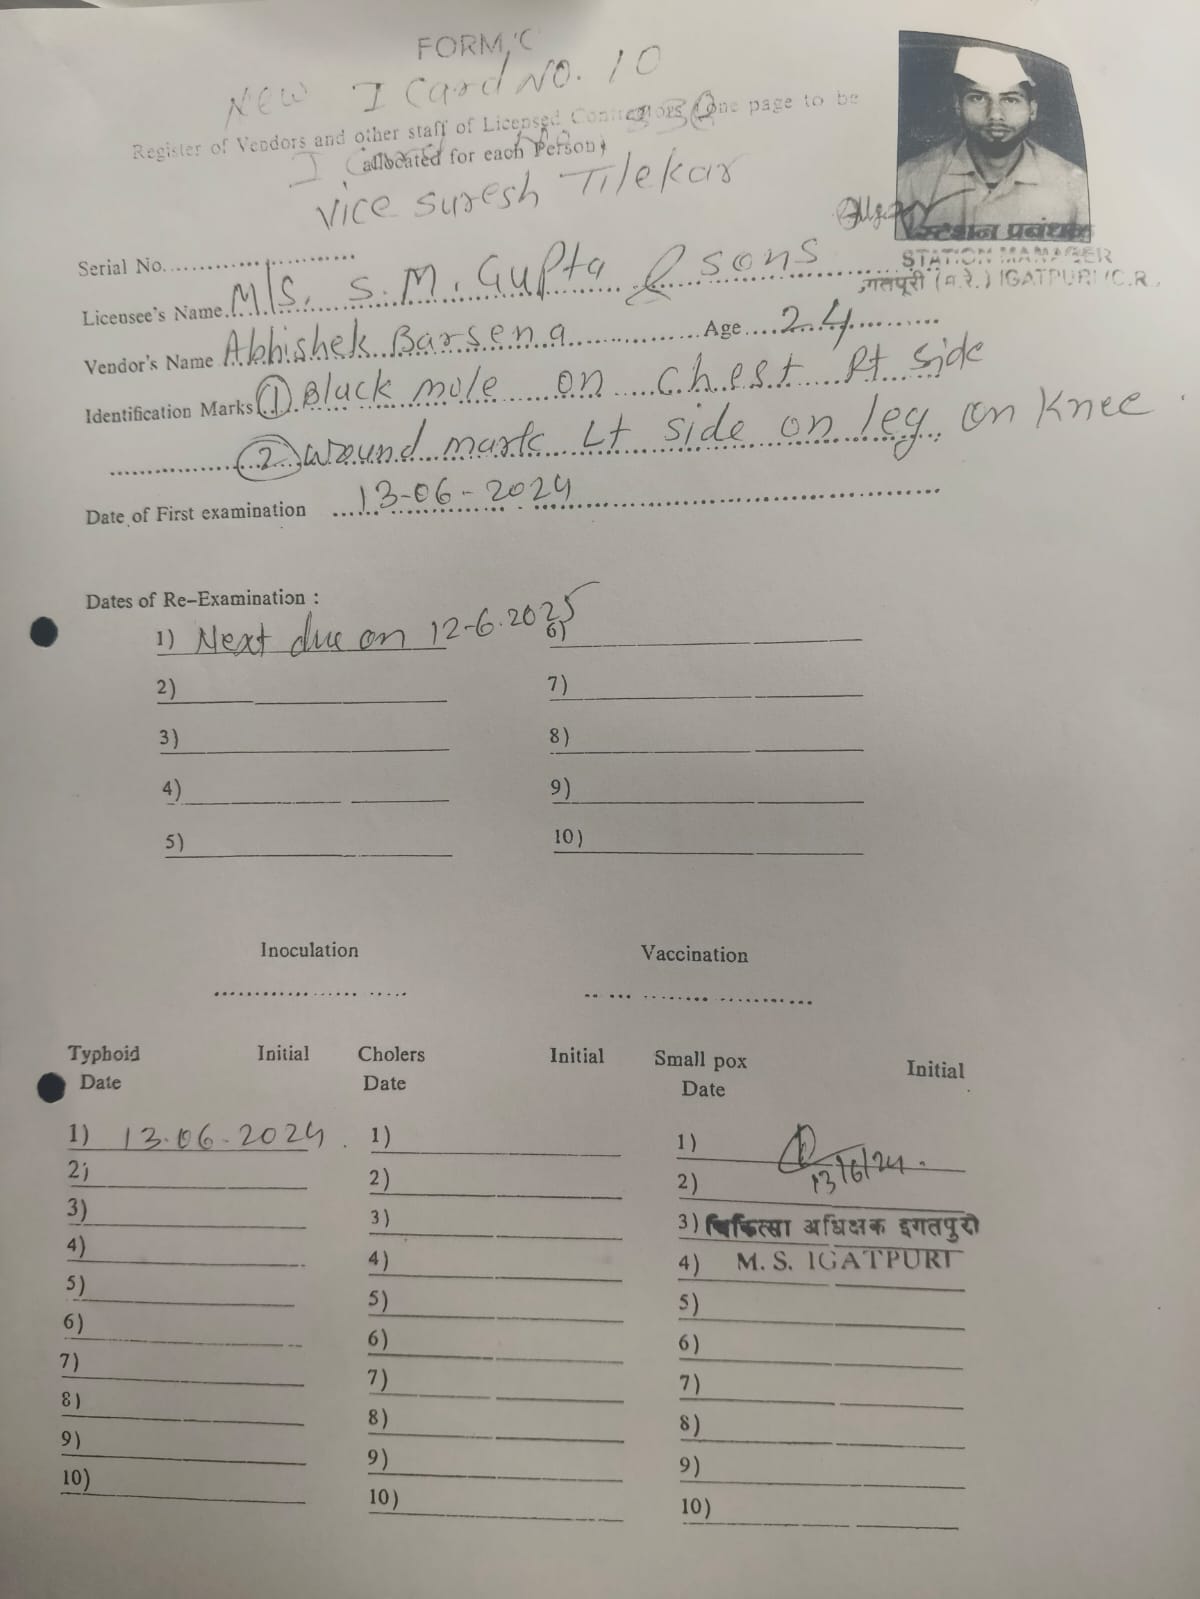 FORM 'C'
New I Card No. 10
Register of Vendors and other staff of Licensed Contractors (One page to be
allocated for each Person)
I Card No
Vice Suresh Tilekar
स्टेशन प्रबंधक
STATION MANAGER
इगतपूरी (म.रे.) IGATPURI (C.R.
Serial No.
Licensee's Name M/S. S. M. Gupta & Sons
Vendor's Name Abhishek Barsena Age 24
Identification Marks ① Black mole on chest Rt side
② wound mark Lt side on leg on Knee.
Date of First examination 13-06-2024
Dates of Re-Examination :
1) Next due on 12-6.2025 6)
2) 7)
3) 8)
4) 9)
5) 10)
Inoculation Vaccination
Typhoid Initial Cholers Initial Small pox Initial
Date Date Date
1) 13.06-2024. 1) 1)
2) 2) 2) 13/6/24.
3) 3) 3) चिकित्सा अधिक्षक इगतपुरी
4) 4) 4) M. S. IGATPURI
5) 5) 5)
6) 6) 6)
7) 7) 7)
8) 8) 8)
9) 9) 9)
10) 10) 10)